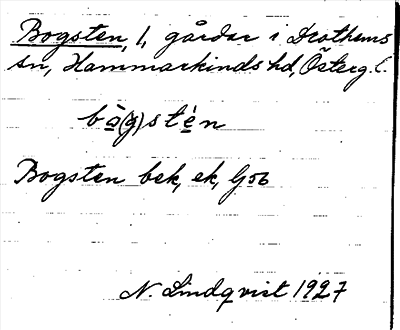 Bogsten, 1, gårdar i Drothems
sn, Hammarkinds hd, Österg. l.
bò(g)stén
Bogsten bek, ek, Gob
N. Lindqvist 1927